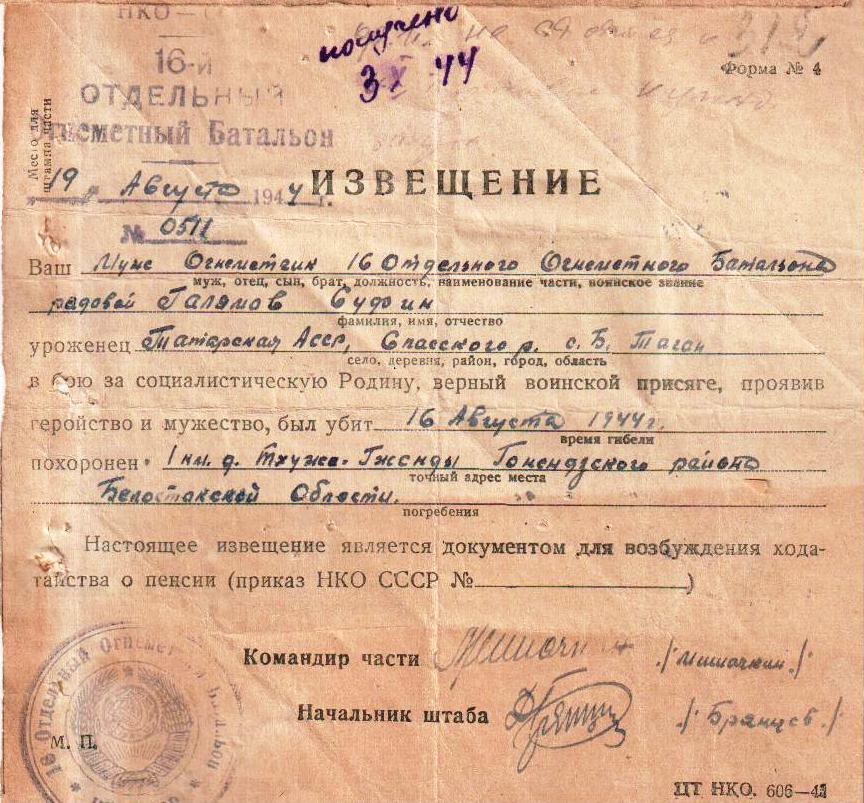 НКО — С
16-й
ОТДЕЛЬНЫЙ
Огнеметный Батальон
Место для штампа части
получено
3 X 44
на
Форма № 4
19 Августа 1944 г.
ИЗВЕЩЕНИЕ
№ 0511
Ваш Муж Огнеметчик 16 Отдельного Огнеметного Батальона
муж, отец, сын, брат, должность, наименование части, воинское звание
рядовой Галямов
фамилия, имя, отчество
уроженец Татарская Асср, Спасского р. с. Б.
село, деревня, район, город, область
в бою за социалистическую Родину, верный воинской присяге, проявив
геройство и мужество, был убит 16 Августа 1944г.
время гибели
похоронен 1 км. д. района
точный адрес места
Белостокской Области.
погребения
Настоящее извещение является документом для возбуждения хода-
тайства о пенсии (приказ НКО СССР № )
Командир части /Мишочкин/
Начальник штаба /Брянцев/
16 Отдельный Огнемет
М. П.
ЦТ НКО. 606—41